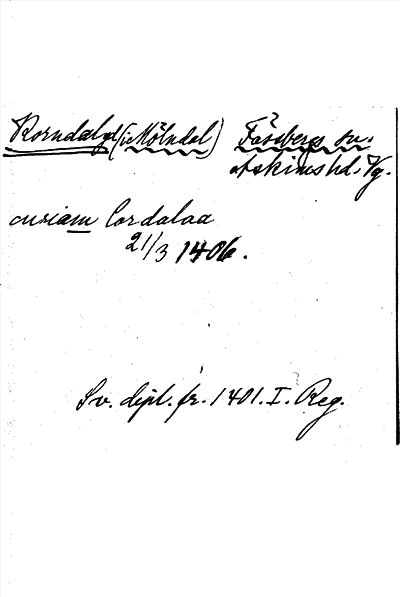 Korndal (i Mölndal) Fässbergs sn.
Askims hd. Vg.
curiam Cordalaa
21/3 1406.
Sv. dipl. fr. 1401. I. Reg.